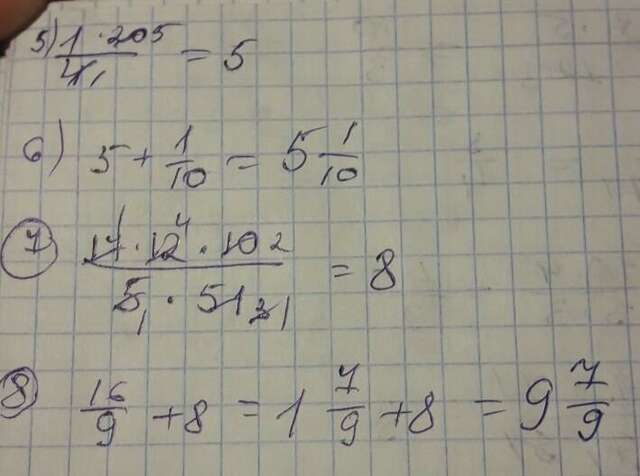 5) 1 · 20 5 / 4 1 = 5
6) 5 + 1/10 = 5 1/10
7 17 1 · 12 4 · 10 2 / 5 1 · 51 3 1 = 8
8 16/9 + 8 = 1 7/9 + 8 = 9 7/9